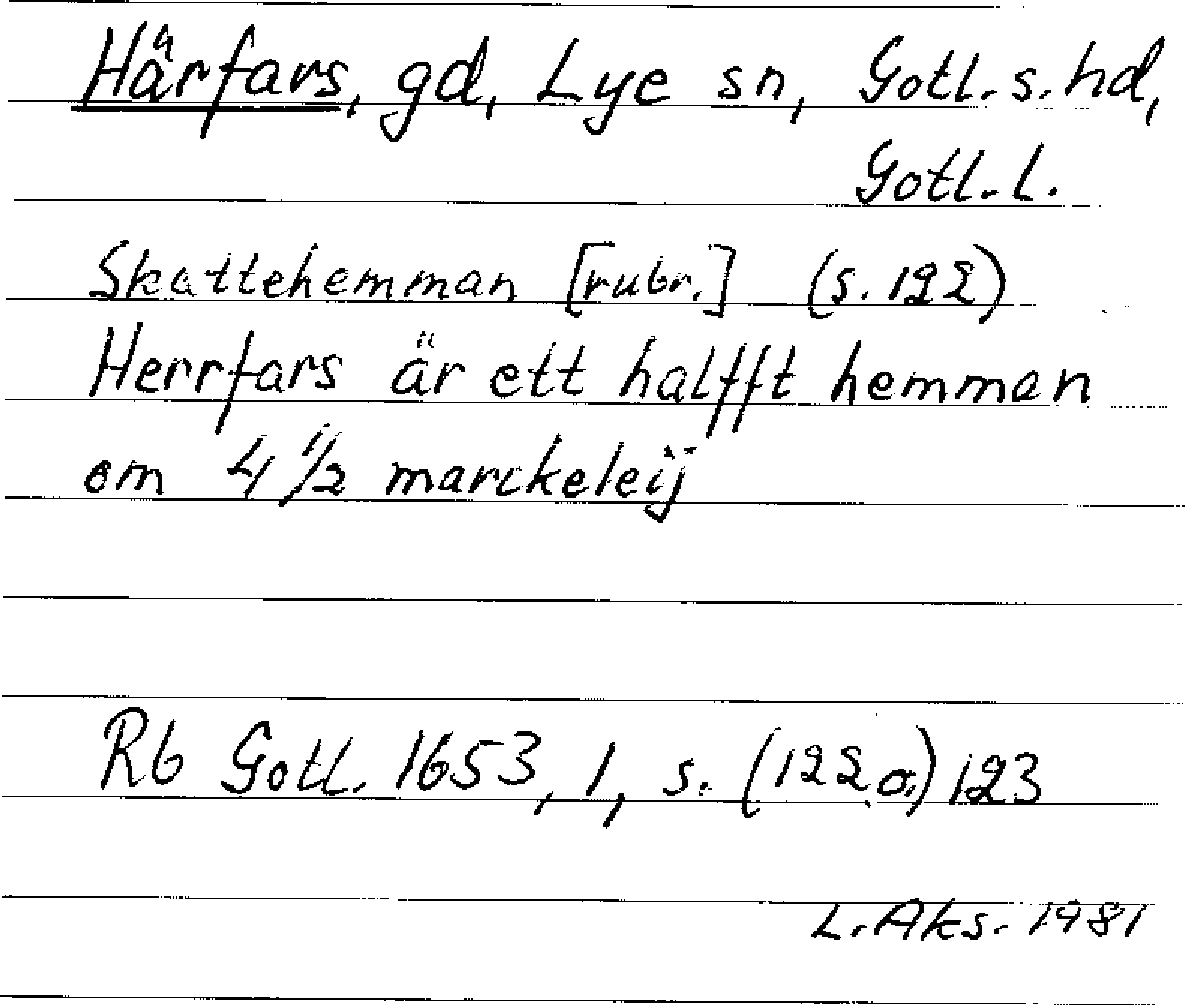 Härfars, gd, Lye sn, Gotl. s. hd,
Gotl. l.
Skattehemman [rubr.] (s. 122)
Herrfars är ett halfft hemman
om 4 1/2 marckeleij
Rb Gotl. 1653, 1, s. (122 o.) 123
L. Aks. 1981